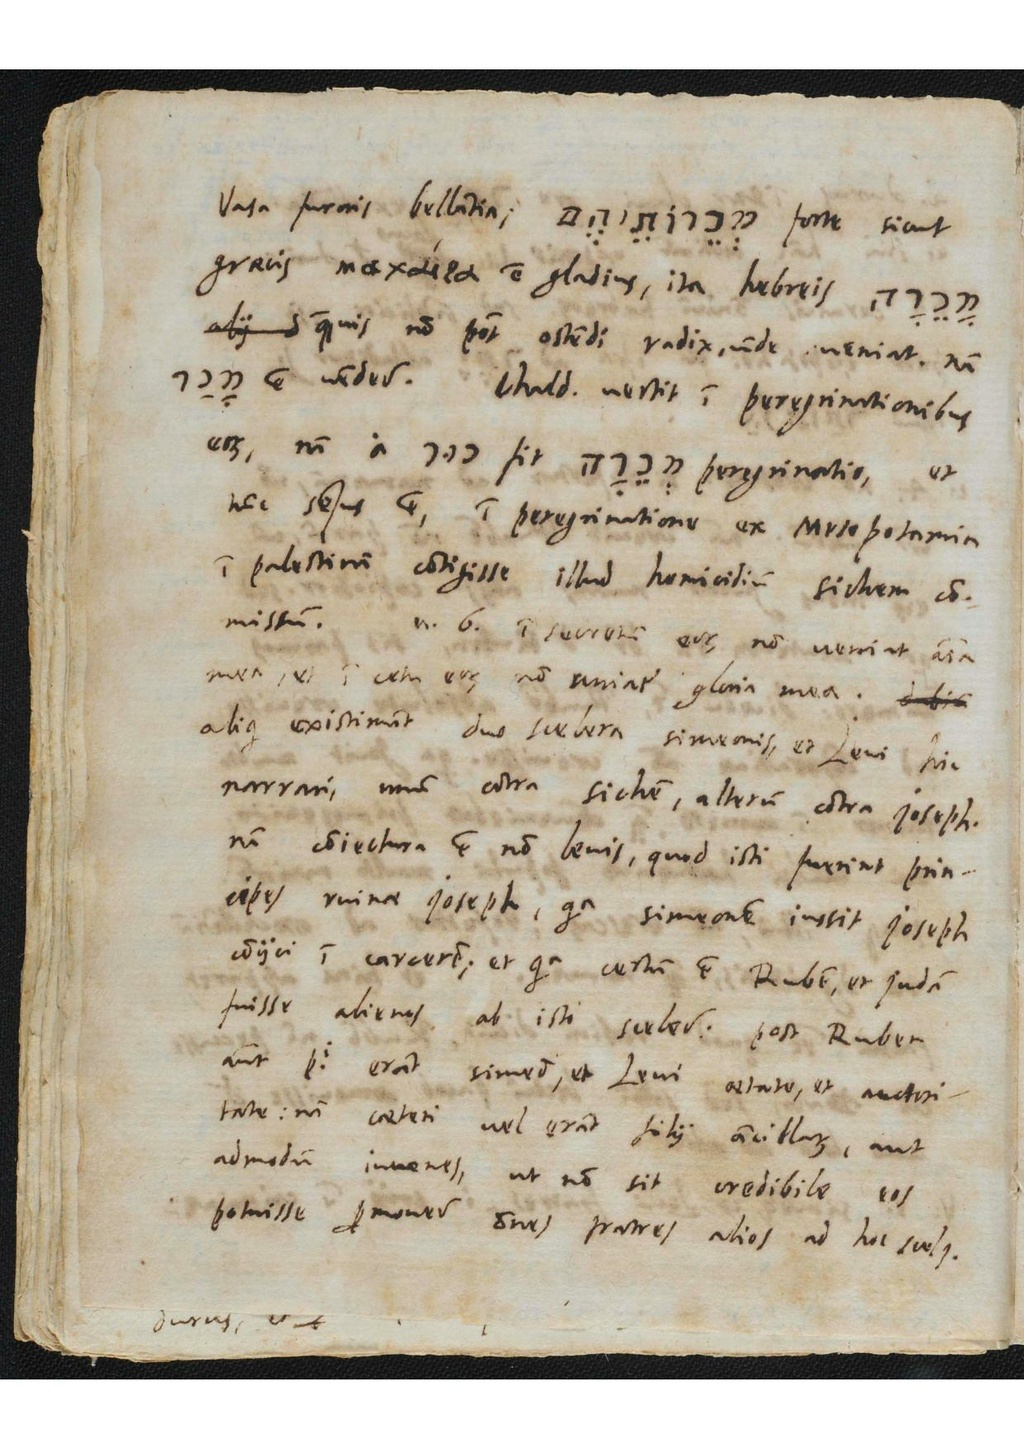 Vasa furoris bellātia; מְכֵרוֹתֵיהֶם forte sicut
græcis μαχαίρα ē gladius, ita hebreis מְכֵרָה
quis nō pōt ostēdi radix, ūde veniat. nā
מָכַר ē vēdeṛ. Chald. vertit ī peregrinationibus
eoꝝ, nā à כור fit מְכֵרָה peregrinatio, et
tūc sēsus ē, ī peregrinatione ex Mesopotamia
ī palestinā cōtigisse illud homicidiū sichem cō-
missum. v. 6. ī secretū eoꝝ nō veniat āīa
mea, et ī cetu eoꝝ nō uniat' gloria mea.
aliq̄ existimāt duo scelera simeonis, et Levi hic
narrari, unū cōtra sichē, alterū cōtra joseph.
nā cōiectura ē nō levis, quod isti fuerint prin-
cipes ruinæ joseph, q̄a simeonē iussit joseph
cōijci ī carcerē; et q̄a certū ē Rubē, et judā
fuisse alienos ab isto sceleṛ. post Ruben
āut p̄i erāt simeō, et Levi ætate, et auctori-
tate: nā cæteri vel erāt filij ācillaꝝ, aut
admodū iuvenes, ut nō sit credibile eos
potuisse ꝓmoveṛ ōnes fratres alios ad hoc scelꝰ.
durus, et